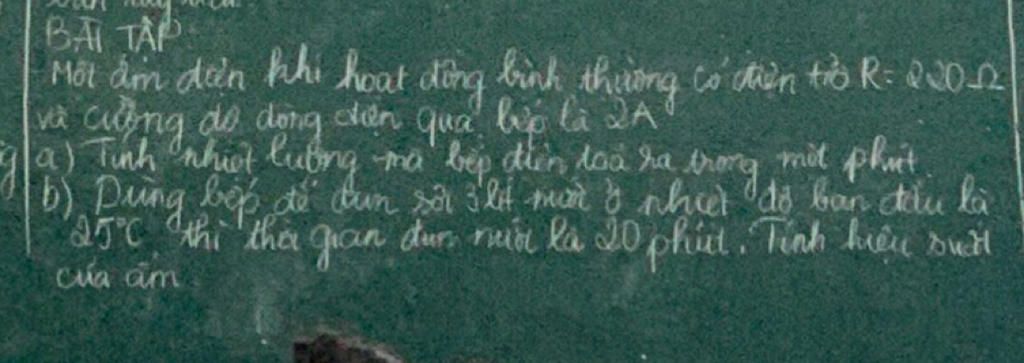 BÀI TẬP
Một ấm điện khi hoạt động bình thường có điện trở R = 220 Ω
và cường độ dòng điện qua bếp là 2A
a) Tính nhiệt lượng mà bếp điện toả ra trong một phút.
b) Dùng bếp để đun sôi 3 lít nước ở nhiệt độ ban đầu là
25°C thì thời gian đun nước là 20 phút. Tính hiệu suất
của ấm